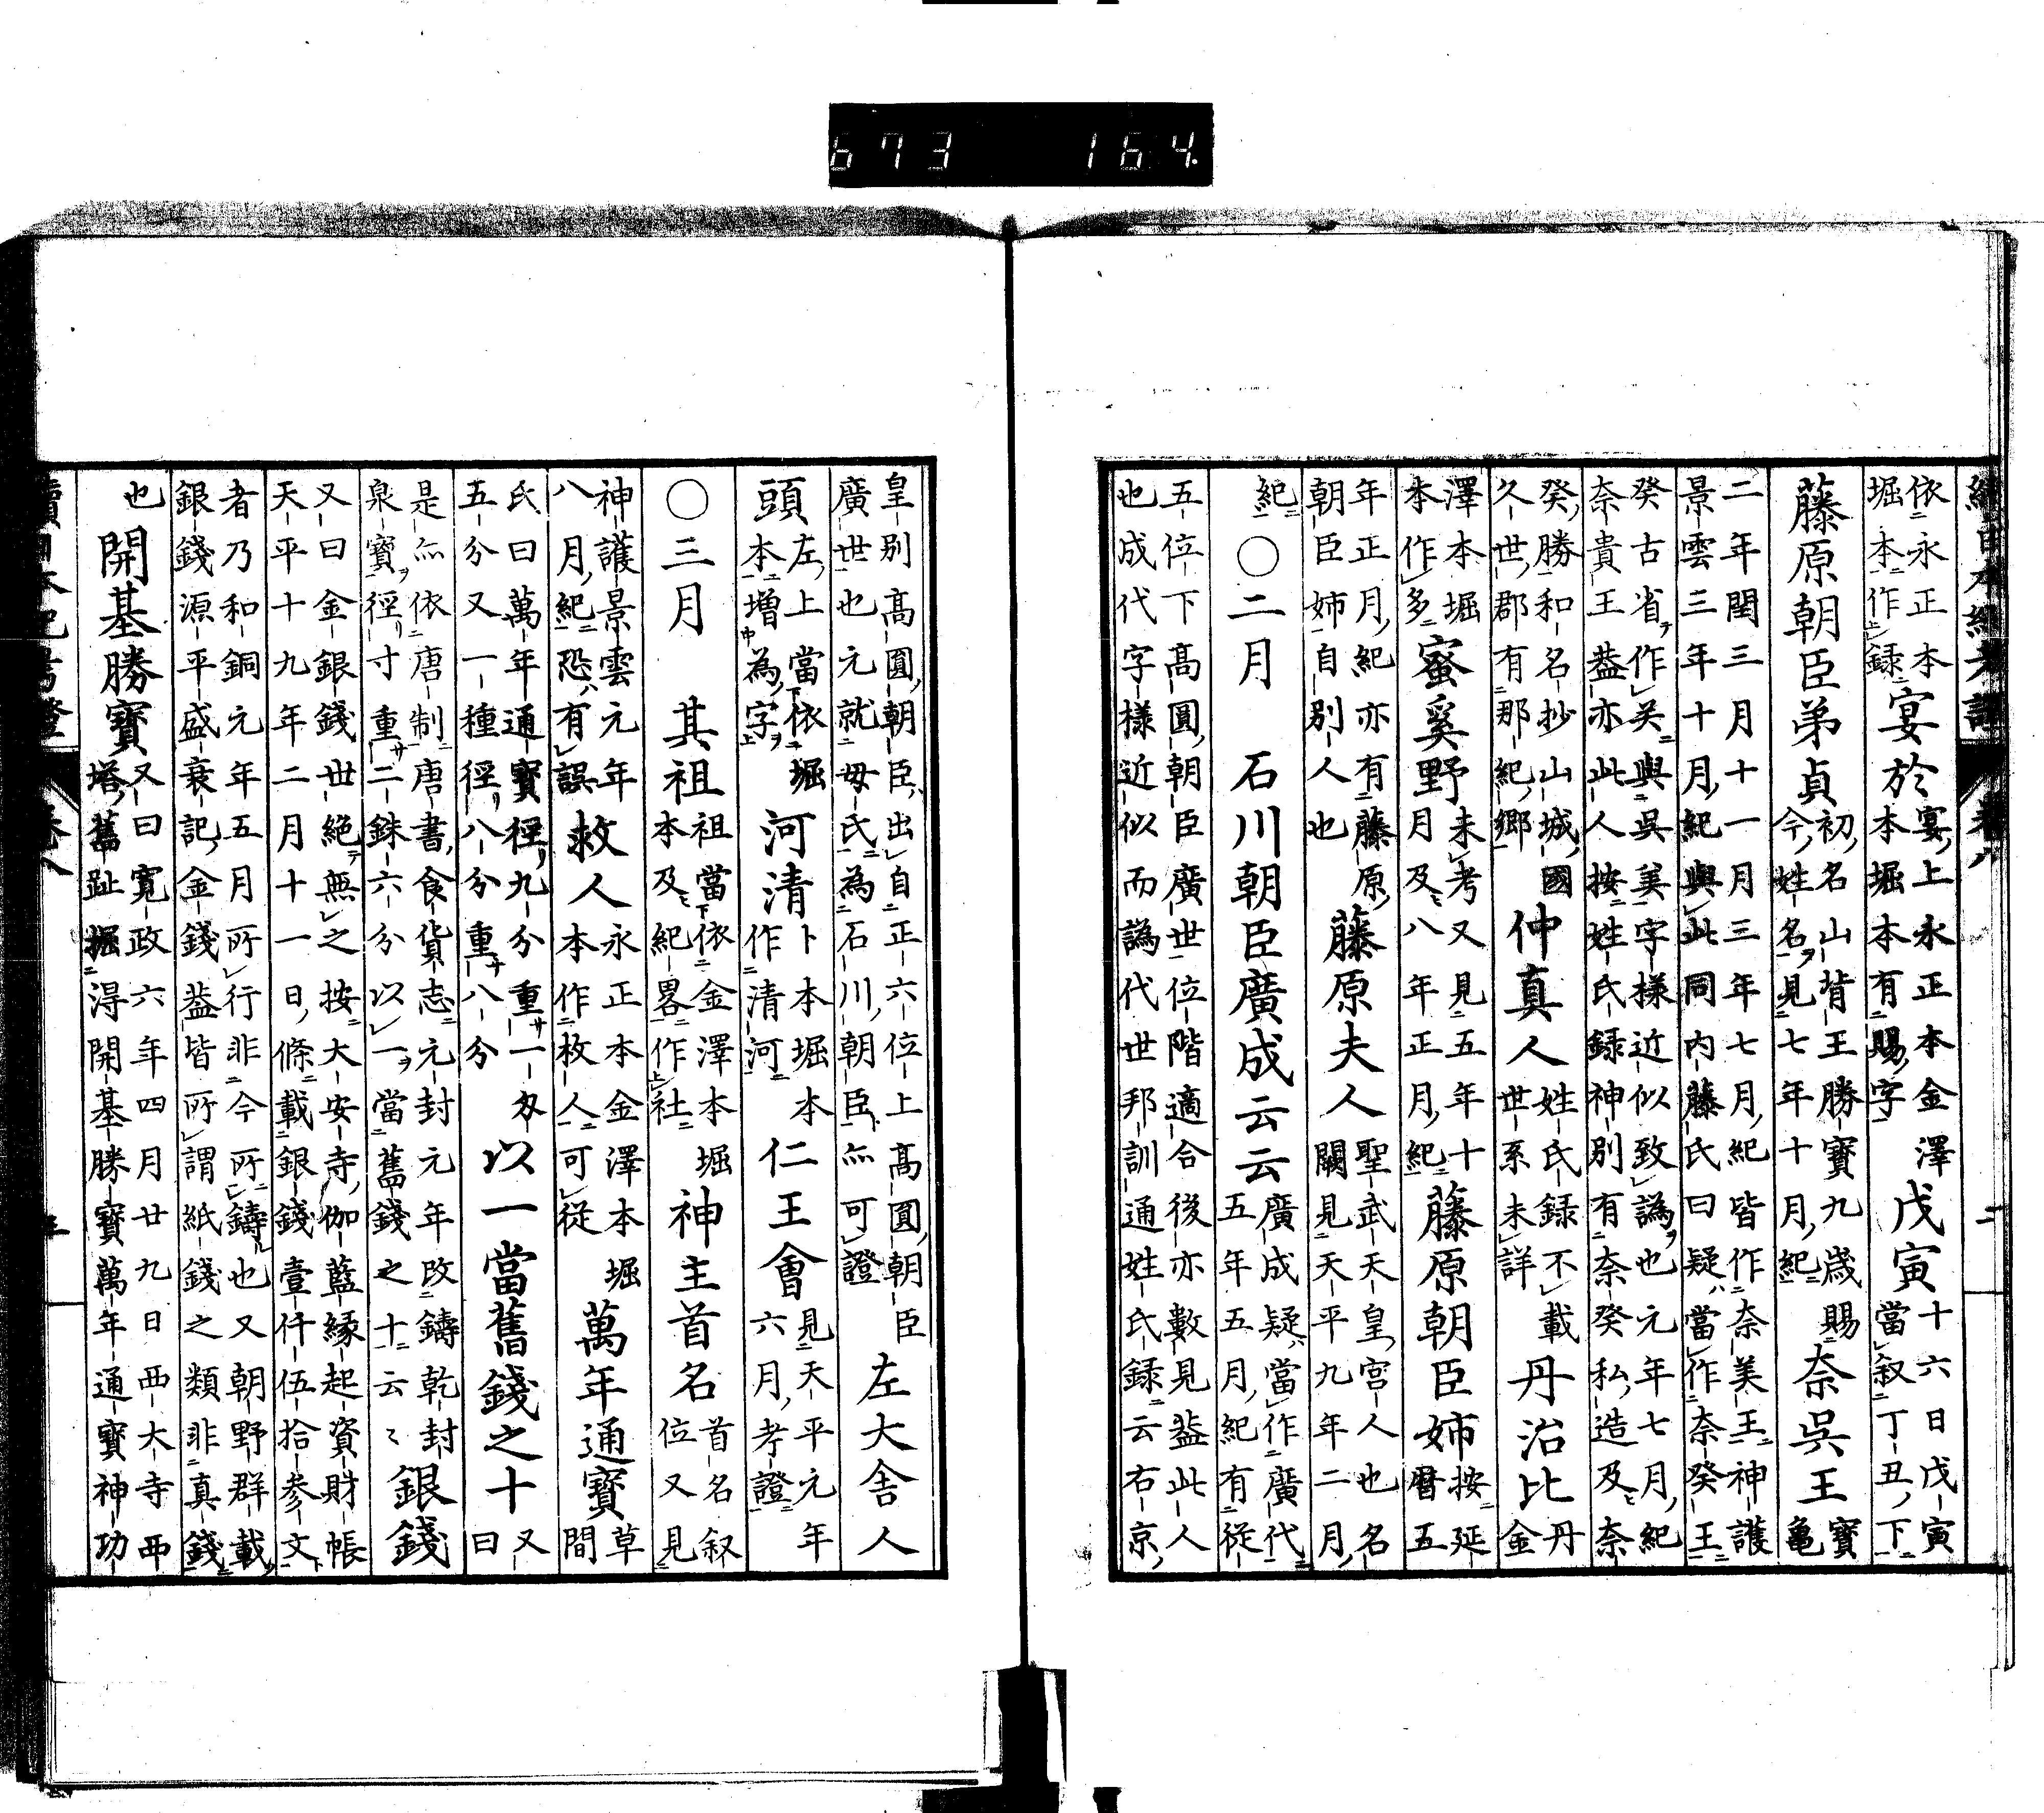 續日本紀考證 卷八 二
依永正本堀本作録宴於宴上永正本金澤本堀本有賜字戊寅十六日戊寅當叙丁丑下
藤原朝臣弟貞初名山背王勝寶九歳賜今姓名見七年十月紀奈呉王寶龜
二年閏三月十一月三年七月紀皆作奈美王神護景雲三年十月紀與此同内藤氏曰疑當作奈癸王
癸古省作关與呉美字様近似致譌也元年七月紀奈貴王蓋亦此人按姓氏録神別有奈癸私造及奈
癸勝和名抄山城國久世郡有那紀郷仲真人姓氏録不載世系未詳丹治比丹金
澤本堀本作多蜜奚野未考又見五年十月及八年正月紀藤原朝臣姉按延暦五
年正月紀亦有藤原朝臣姉自別人也藤原夫人聖武天皇宮人也名闕見天平九年二月
紀○二月 石川朝臣廣成云云廣成疑當作廣代五年五月紀有從
五位下高圓朝臣廣世位階適合後亦數見蓋此人也成代字様近似而譌代世邦訓通姓氏録云右京
皇別高圓朝臣出自正六位上高圓朝臣廣世也元就母氏為石川朝臣亦可證左大舎人
頭左上當依堀本増為字河清卜本堀本作清河仁王會見天平元年六月考證
○三月 其祖祖當依金澤本堀本及紀畧作社神主首名首名叙位又見
神護景雲元年八月紀恐有誤救人永正本金澤本堀本作枚人可從萬年通寳草間
氏曰萬年通寳徑九分重一匁五分又一種徑八分重八分以一當舊錢之十又曰
是亦依唐制唐書食貨志元封元年改鑄乾封泉寳徑寸重二銖六分以一當舊錢之十云〻銀錢
又曰金銀錢世絶無之按大安寺伽藍縁起資財帳天平十九年二月十一日條載銀錢壹仟伍拾參文
者乃和銅元年五月所行非今所鑄也又朝野群載銀錢源平盛衰記金錢蓋皆所謂紙錢之類非真錢
也開基勝寳又曰寛政六年四月廿九日西大寺西塔舊趾掘得開基勝寳萬年通寳神功
續日本紀考證 卷八 三